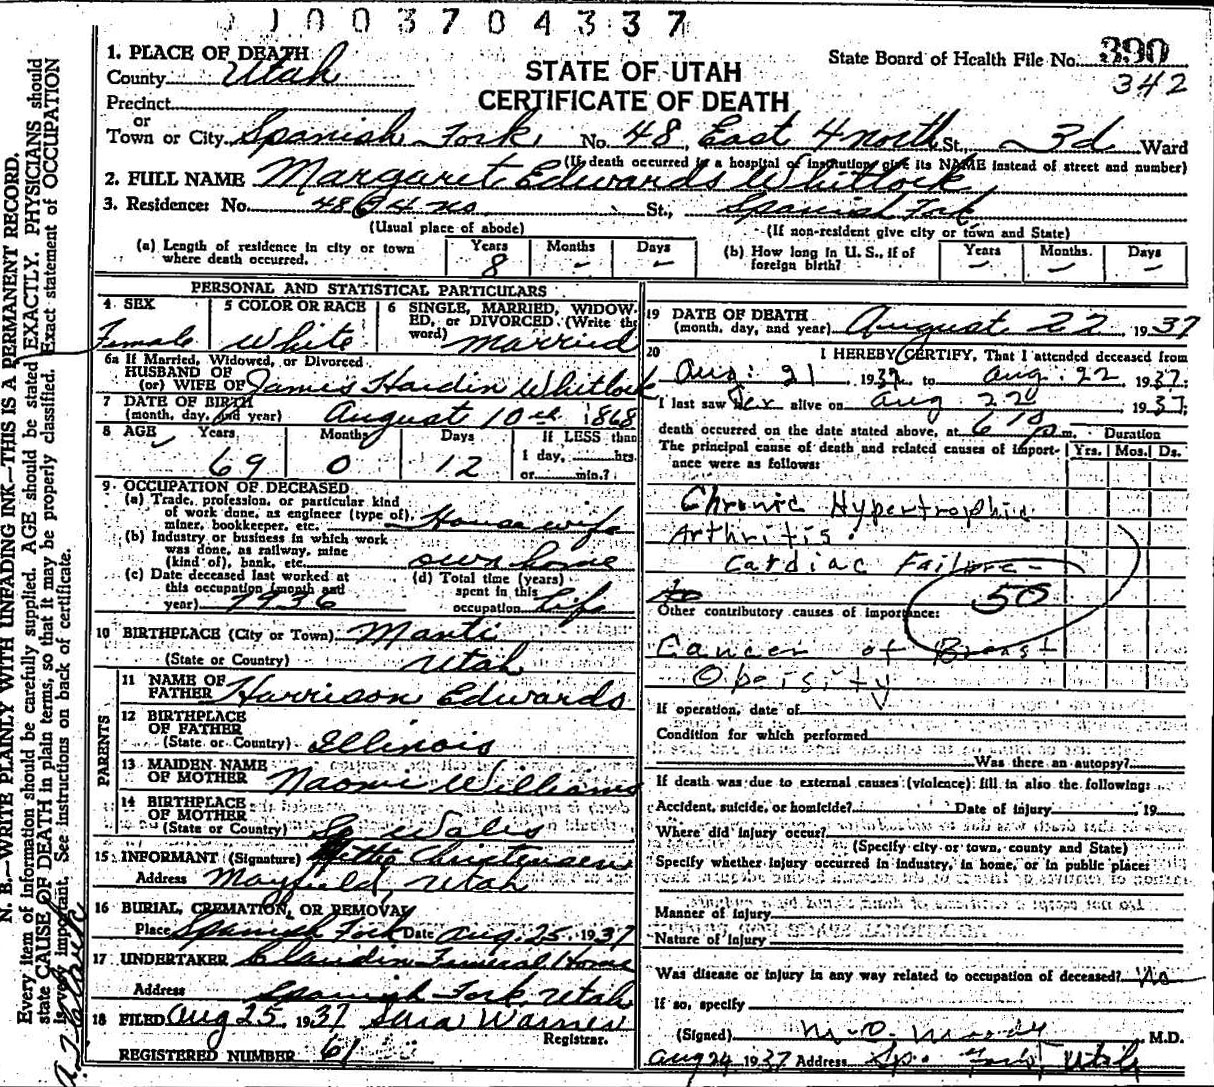 0 1 0 0 3 7 0 4 3 3 7
1. PLACE OF DEATH
County Utah
STATE OF UTAH
CERTIFICATE OF DEATH
State Board of Health File No. 390
342
Precinct
or
Town or City Spanish Fork, No. 48 East 4 north St., 3d Ward
(If death occurred in a hospital or institution, give its NAME instead of street and number)
2. FULL NAME Margaret Edwards Whitlock
3. Residence: No. 48 E 4 no St., Spanish Fork
(Usual place of abode) (If non-resident give city or town and State)
(a) Length of residence in city or town where death occurred. Years 8 Months – Days –
(b) How long in U. S., if of foreign birth? Years – Months. – Days –
PERSONAL AND STATISTICAL PARTICULARS
4 SEX Female
5 COLOR OR RACE White
6 SINGLE, MARRIED, WIDOWED, or DIVORCED. (Write the word) Married
6a If Married, Widowed, or Divorced
HUSBAND OF
(or) WIFE OF James Hardin Whitlock
7 DATE OF BIRTH
(month, day, and year) August 10th 1868
8 AGE Years 69 Months 0 Days 12 If LESS than 1 day, hrs. or min.?
9. OCCUPATION OF DECEASED
(a) Trade, profession, or particular kind
of work done, as engineer (type of),
miner, bookkeeper, etc. House wife
(b) Industry or business in which work
was done, as railway, mine
(kind of), bank, etc. own home
(c) Date deceased last worked at
this occupation (month and
year) 1936
(d) Total time (years)
spent in this
occupation Life
10 BIRTHPLACE (City or Town) Manti
(State or Country) Utah
PARENTS
11 NAME OF
FATHER Harrison Edwards
12 BIRTHPLACE
OF FATHER
(State or Country) Illinois
13 MAIDEN NAME
OF MOTHER Naomi Williams
14 BIRTHPLACE
OF MOTHER
(State or Country) So Wales
15. INFORMANT (Signature) Christensen
Address Mayfield, Utah
16 BURIAL, CREMATION, OR REMOVAL
Place Spanish Fork Date Aug. 25, 1937
17 UNDERTAKER Claudin Funeral Home
Address Spanish Fork, Utah
18 FILED Aug 25, 1937 Sara Warner
Registrar.
REGISTERED NUMBER 61
19 DATE OF DEATH
(month, day, and year) August 22, 1937
20 I HEREBY CERTIFY, That I attended deceased from
Aug. 21, 1937, to Aug. 22, 1937;
I last saw her alive on Aug 22, 1937;
death occurred on the date stated above, at 6 10 p m. Duration
The principal cause of death and related causes of importance were as follows: Yrs. Mos. Ds.
Chronic Hypertrophic
Arthritis.
Cardiac Failure
50
Other contributory causes of importance:
Cancer of Breast
Obeisity
If operation, date of
Condition for which performed
Was there an autopsy?
If death was due to external causes (violence) fill in also the following:
Accident, suicide, or homicide? Date of injury , 19
Where did injury occur?
(Specify city or town, county and State)
Specify whether injury occurred in industry, in home, or in public place:
Manner of injury
Nature of injury
Was disease or injury in any way related to occupation of deceased? No
If so, specify
(Signed) M. O. Moody M.D.
Aug 24, 1937 Address Sp. Fork, Utah
N. B.—WRITE PLAINLY WITH UNFADING INK—THIS IS A PERMANENT RECORD.
Every item of information should be carefully supplied. AGE should be stated EXACTLY. PHYSICIANS should
state CAUSE OF DEATH in plain terms, so that it may be properly classified. Exact statement of OCCUPATION
is very important. See instructions on back of certificate.